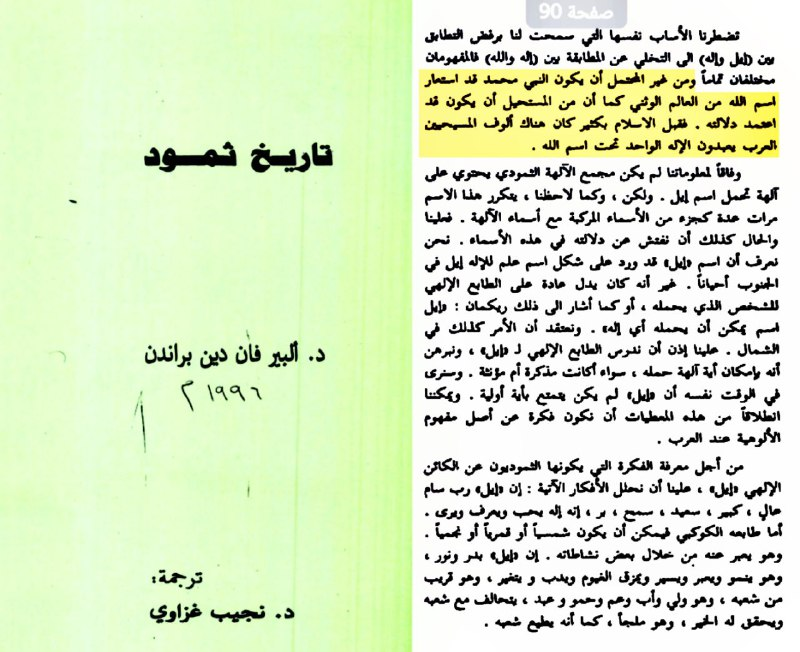 تاريخ ثمود
د. ألبير فان دين براندن
١٩٩٦ م
ترجمة:
د. نجيب غزاوي
صفحة 90
تضطرنا الأساب نفسها التي سمحت لنا برفض التطابق
بين (إيل وإله) الى التخلي عن المطابقة بين (إله والله) فالمفهومان
مختلفان تماماً ومن غير المحتمل أن يكون النبي محمد قد استعار
اسم الله من العالم الوثني كما أن من المستحيل أن يكون قد
اعتمد دلالته . فقبل الاسلام بكثير كان هناك ألوف المسيحيين
العرب يعبدون الإله الواحد تحت اسم الله .
وفاقاً لمعلوماتنا لم يكن مجمع الآلهة الثمودي يحتوي على
آلهة تحمل اسم إيل . ولكن ، وكما لاحظنا ، يتكرر هذا الاسم
مرات عدة كجزء من الأسماء المركبة مع أسماء الآلهة . فعلينا
والحال كذلك أن نفتش عن دلالته في هذه الأسماء . نحن
نعرف أن اسم «إيل» قد ورد على شكل اسم علم للإله إيل في
الجنوب أحياناً . غير أنه كان يدل عادة على الطابع الإلهي
للشخص الذي يحمله ، أو كما أشار الى ذلك ريكمان : «إيل
اسم يمكن أن يحمله أي إله» . ونعتقد أن الأمر كذلك في
الشمال . علينا إذن أن ندرس الطابع الإلهي لـ «إيل» ، ونبرهن
أنه بإمكان أية آلهة حمله ، سواء أكانت مذكرة أم مؤنثة . وسنرى
في الوقت نفسه أن «إيل» لم يكن يتمتع بأية أولية . ويمكننا
انطلاقاً من هذه المعطيات أن نكون فكرة عن أصل مفهوم
الألوهية عند العرب .
من أجل معرفة الفكرة التي يكونها الثموديون عن الكائن
الإلهي «إيل» ، علينا أن نحلل الأفكار الآتية : إن «إيل» رب سام
عالي ، كبير ، سعيد ، سمح ، بر ، إنه إله يحب ويعرف ويرى .
أما طابعه الكوكبي فيمكن أن يكون شمسياً أو قمرياً أو نجمياً .
وهو يعبر عنه من خلال بعض نشاطاته . إن «إيل» بدر ونور ،
وهو ينمو ويعبر ويسير ويمزق الغيوم ويدب و يتغير ، وهو قريب
من شعبه ، وهو ولي وأب وعم وحمو و عبد ، يتحالف مع شعبه
ويحقق له الخير ، وهو ملجأ ، كما أنه يطيع شعبه .